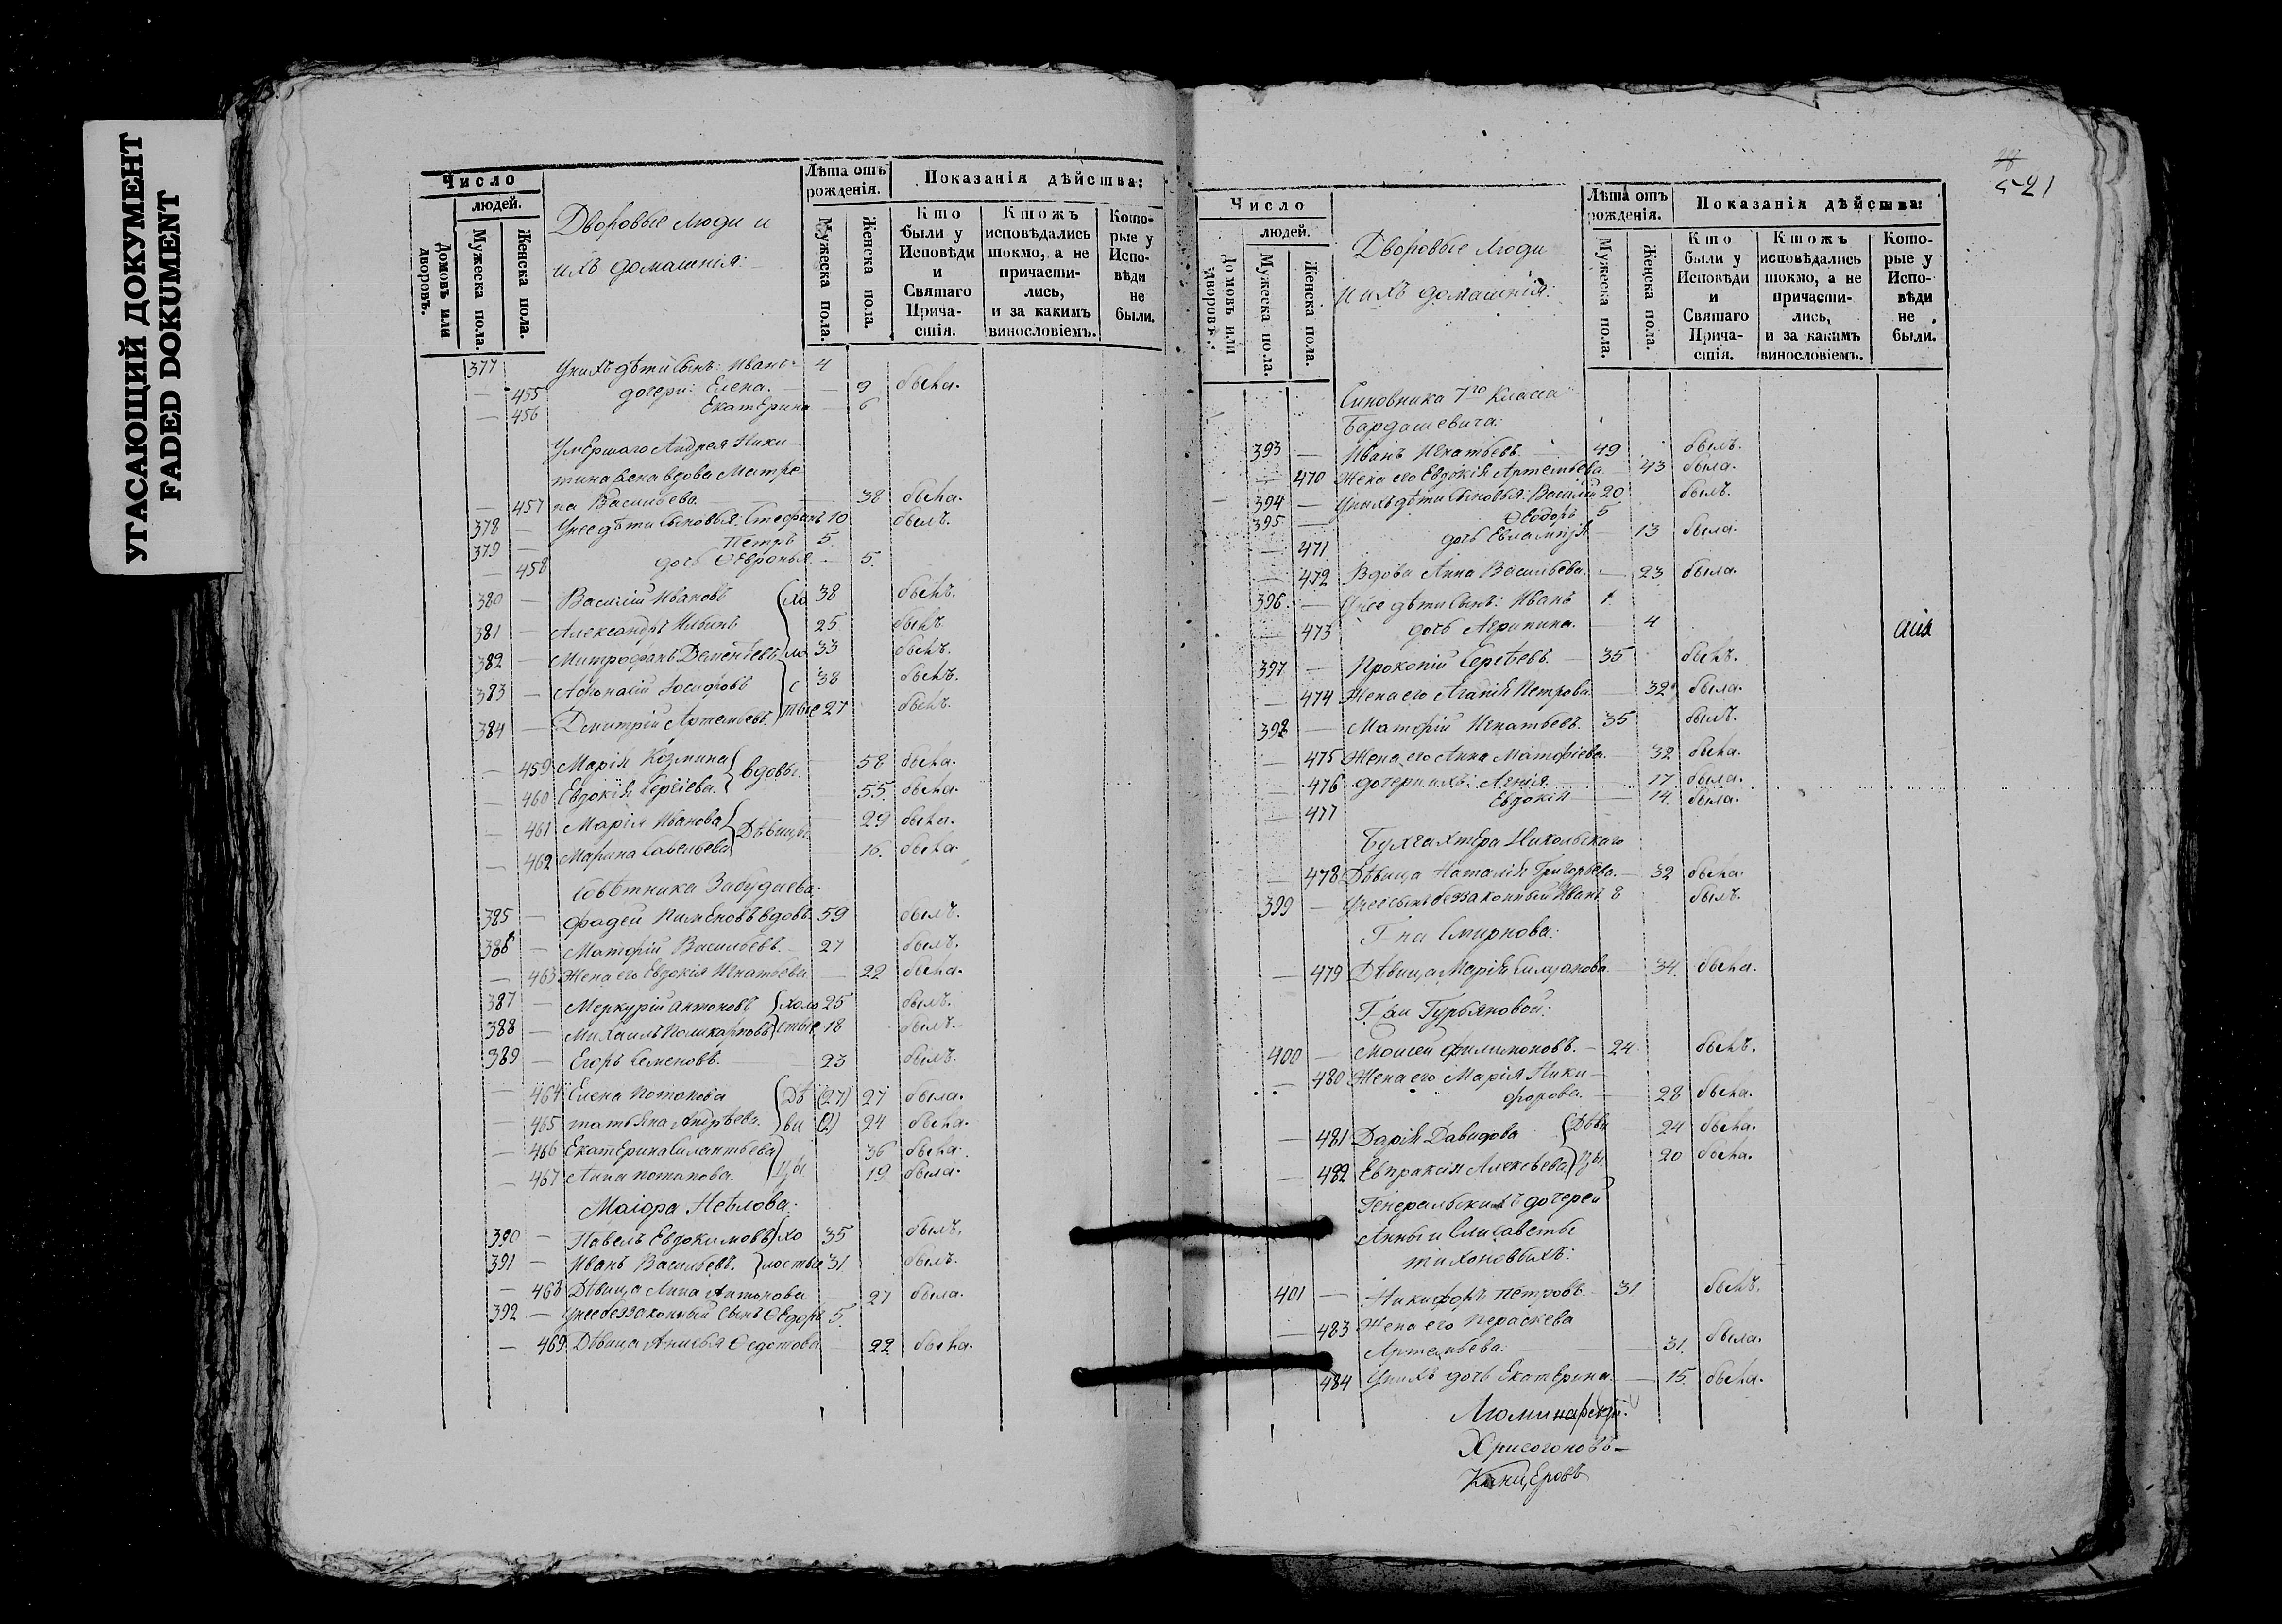 УГАСАЮЩИЙ ДОКУМЕНТ
FADED DOKUMENT
Число
людей.
Домовъ или дворовъ.
Мужеска пола.
Женска пола.
Дворовые люди и
ихъ домашнія:
Лѣта отъ рожденія.
Мужеска пола.
Женска пола.
Показанія дѣйства:
Кто были у Исповѣди и Святаго Причастія.
Ктожъ исповѣдались токмо, а не причастились, и за какимъ винословіемъ.
Которые у Исповѣди не были.
377 У нихъ дѣти сынъ: Иванъ 4
— 455 дочери: Елена. — 9 была.
— 456 Екатерина — 6
Умершаго Андрея Ники—
тина жена вдова Матре
— 457 на Васильева. — 38 была.
378 — У нее дѣти сыновья: Стефанъ 10 былъ.
379 — Петръ 5.
— 458 дочь Ѳевронья — 5.
380 — Василій Ивановъ (хо 38 былъ.
381 — Александръ Ильинъ 25 былъ.
382 — Митрофанъ Дементьевъ ло 33 былъ.
383 — Афонасій Іосифовъ с 38 былъ.
384 — Димитрій Артемьевъ. тые 27 былъ.
— 459 Марія Козмина — 58 была.
вдовы.
— 460 Евдокія Сергіева. 55 была.
— 461 Марія Иванова — 29 была.
Дѣвицы.
— 462 Марина Савельева — 16. была
Совѣтника Забудаева.
385 — Фадей Пименовъ вдовъ 59 былъ.
386 — Матфій Васильевъ. 27 былъ.
— 463 Жена его Евдокія Игнатьева — 22 была.
387 — Меркурій Антоновъ холо 25 былъ.
388 — Михаилъ Поликарповъ стые 18 былъ.
389 — Егоръ Семеновъ. 23 былъ.
— 464 Елена Потапова (Дѣ (27) 27 была.
— 465 Татьяна Андрѣева. ви (2) 24 была.
— 466 Екатерина Силантьева 36 была.
— 467 Анна Потапова. цы. 19 была.
Маіора Неѣлова.
390 — Павелъ Евдокимовъ хо 35 былъ.
391 — Иванъ Васильевъ. лостые 31. былъ.
— 468 Дѣвица Анна Антонова — 27 была.
392 — У нее беззаконный сынъ Ѳедоръ 5.
— 469 Дѣвица Анисья Ѳедотова — 22 была.
521
Число
людей.
Домовъ или дворовъ.
Мужеска пола.
Женска пола.
Дворовые люди
и ихъ домашнія:
Лѣта отъ рожденія.
Мужеска пола.
Женска пола.
Показанія дѣйства:
Кто были у Исповѣди и Святаго Причастія.
Ктожъ исповѣдались токмо, а не причастились, и за какимъ винословіемъ.
Которые у Исповѣди не были.
Чиновника 7го Класса
Бардашевича:
393 — Иванъ Игнатьевъ. 49 былъ.
— 470 Жена его Евдокія Артемьева — 43 была.
394 — У нихъ дѣти сыновья: Василій 20 былъ.
395 — Ѳеодоръ 5
— 471 дочь Евлампія — 13 была.
— 472 Вдова Анна Васильева. — 23 была.
396. — У нее дѣти сынъ: Иванъ 1.
— 473 дочь Агрипина. — 4
397 — Прокопій Сергѣевъ. — 35 былъ.
— 474 Жена его Агапія Петрова — 32 была.
398 — Матфій Игнатьевъ. 35 былъ.
— 475 Жена его Анна Матфіева. — 32 была.
— 476 дочери ихъ: Агнія. — 17. была.
— 477 Евдокія — 14. была.
Бухгахтера Никольскаго
— 478 Дѣвица Наталія Григорьева. — 32 была.
399 — У нее сынъ беззаконный Иванъ 8 былъ.
Г-на Смирнова:
— 479 Дѣвица Марія — 34. была.
Г-жи Гурьяновой:
400 — Моисей Филимоновъ. — 24 былъ.
— 480 Жена его Марія Ники—
форова. — 28 была.
— 481 Дарія Давидова (Дѣви 24 была.
— 482 Евпраксія Алексѣева цы. 20 была.
Генеральскихъ дочерей
Анны и Елисаветы
Тихоновыхъ:
401 — Никифоръ Петровъ. — 31 былъ.
— 483 Жена его Пераскева
Артемьева. — 31. была.
484 У нихъ дочь Екатерина. — 15. была.
Хрисогоновъ—